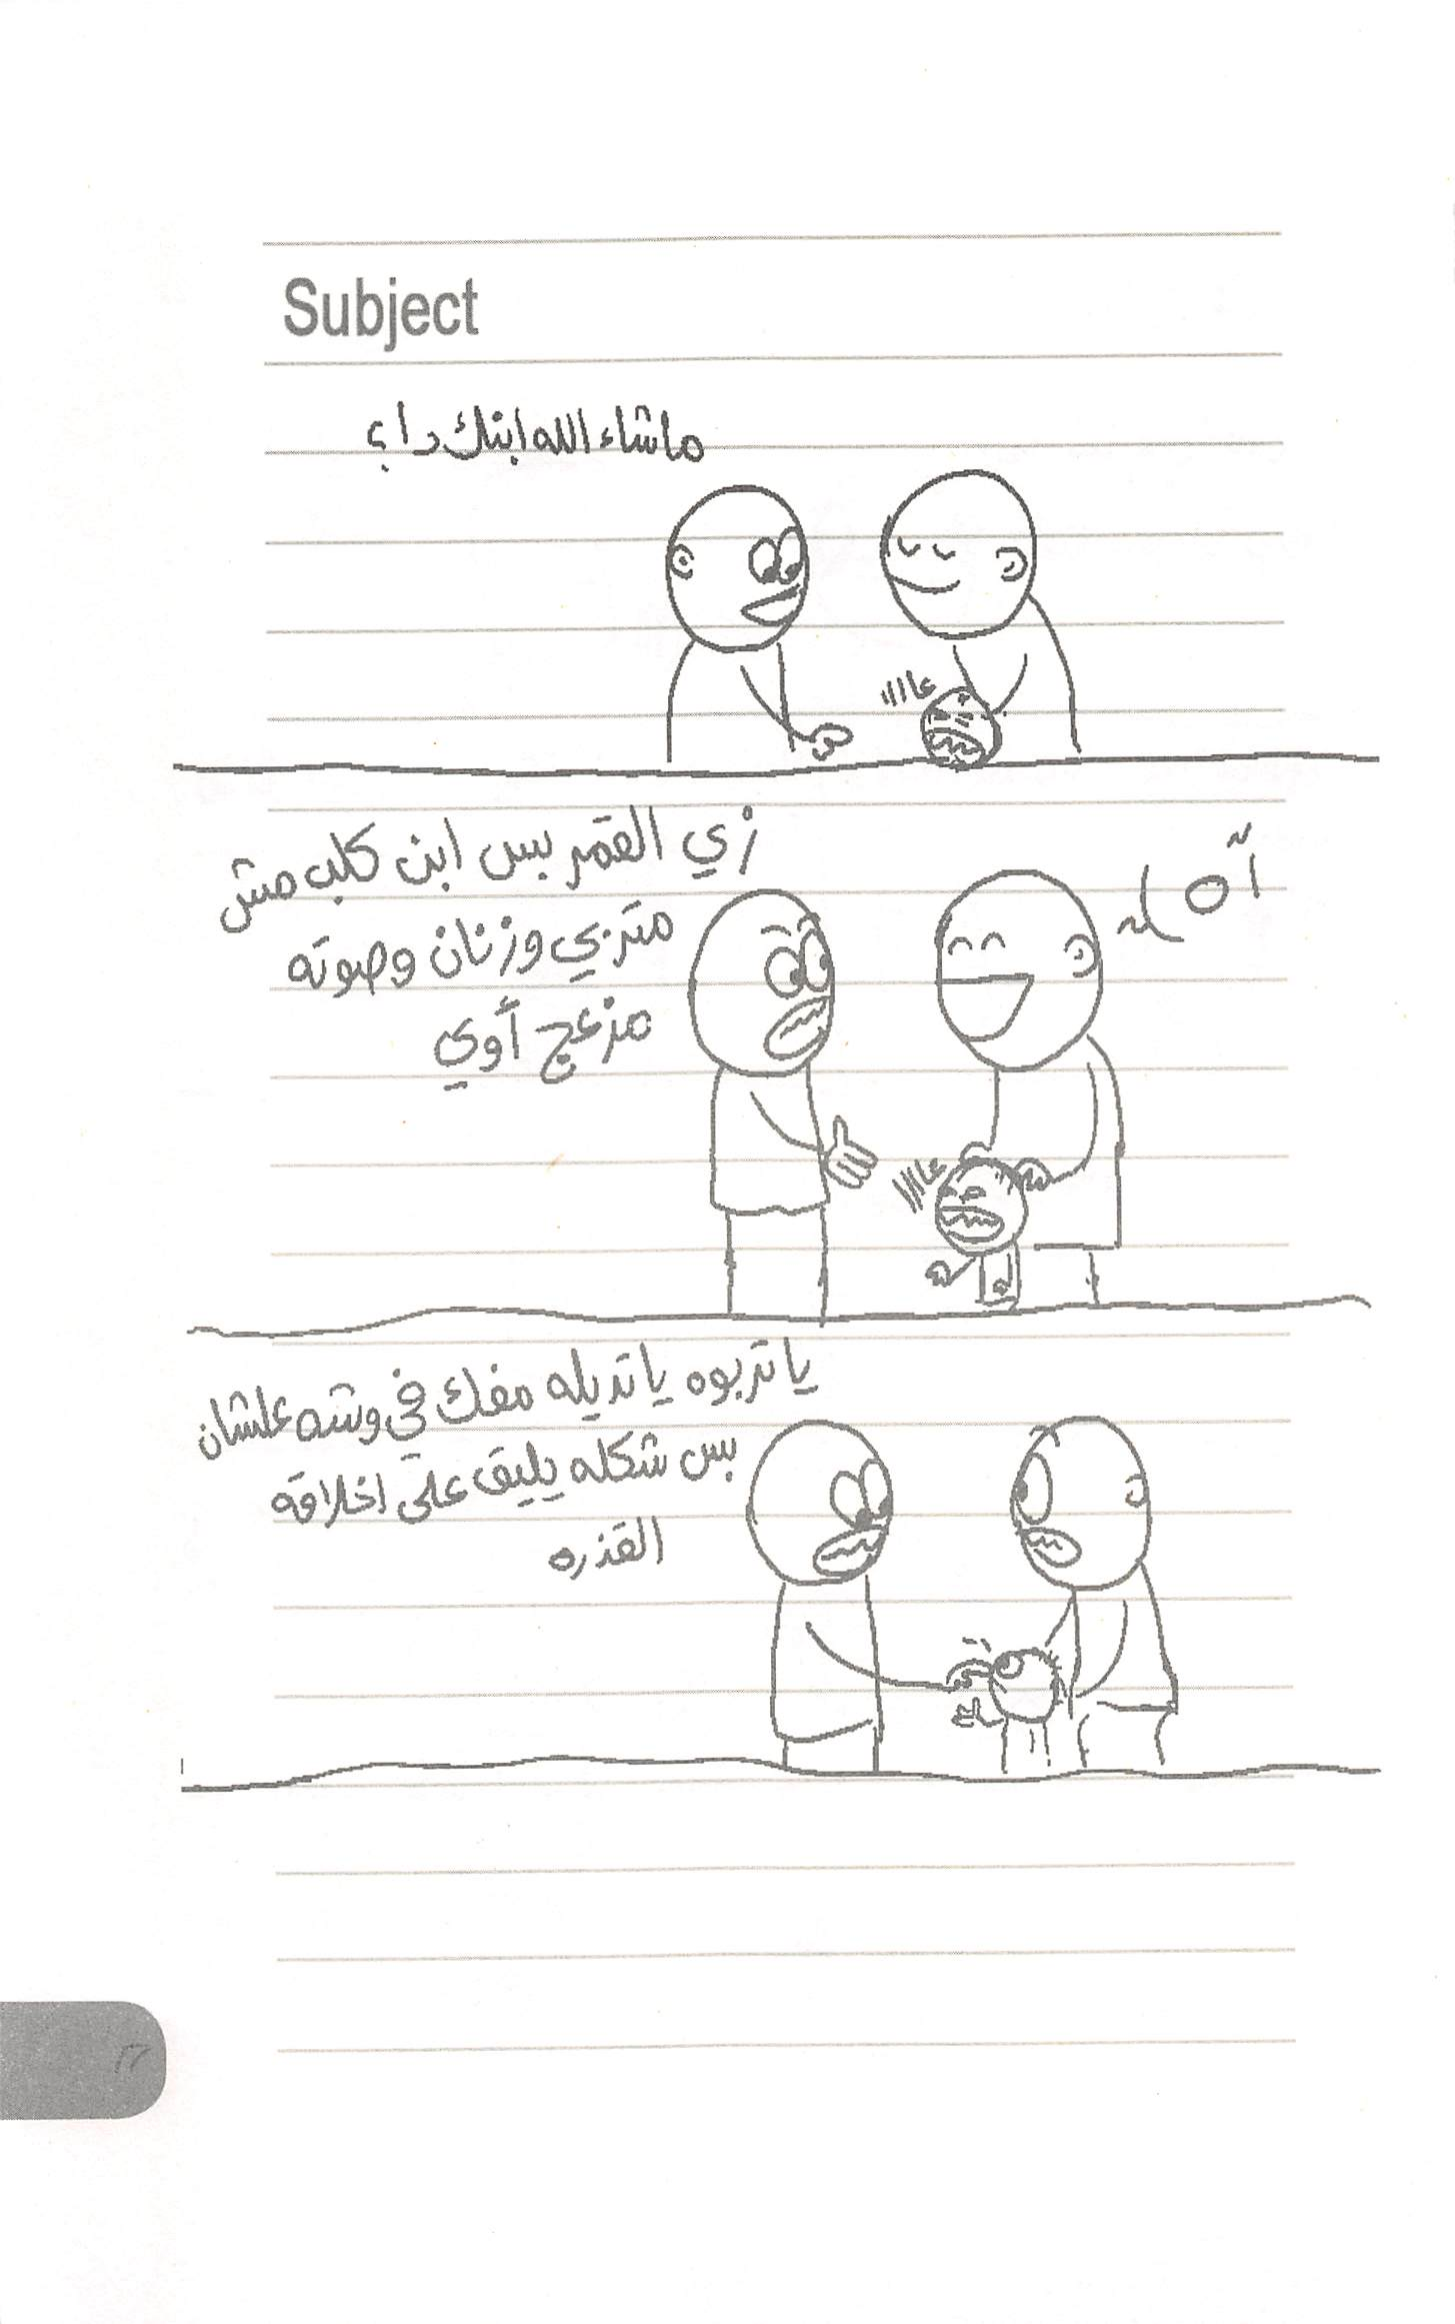 Subject
ماشاء الله ابنك دا؟
عااا
زي القمر بس ابن كلب مش
متربي وزنان وصوته
مزعج أوي
آه
عااا
يا تربوه يا تديله مفك في وشه علشان
بس شكله يليق على اخلاقه
القذره